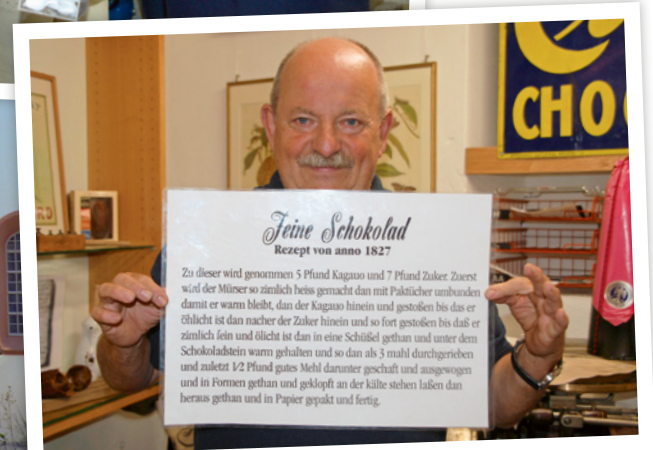 CHO
Feine Schokolad
Rezept von anno 1827
Zu dieser wird genommen 5 Pfund Kagauo und 7 Pfund Zuker. Zuerst
wird der Mürser so zimlich heiss gemacht dan mit Paktücher umbunden
damit er warm bleibt, dan der Kagauo hinein und gestoßen bis das er
öhlicht ist dan nacher der Zuker hinein und so fort gestoßen bis daß er
zimlich fein und ölicht ist dan in eine Schüßel gethan und unter dem
Schokoladstein warm gehalten und so dan als 3 mahl durchgerieben
und zuletzt 1/2 Pfund gutes Mehl darunter geschaft und ausgewogen
und in Formen gethan und geklopft an der kälte stehen laßen dan
heraus gethan und in Papier gepakt und fertig.